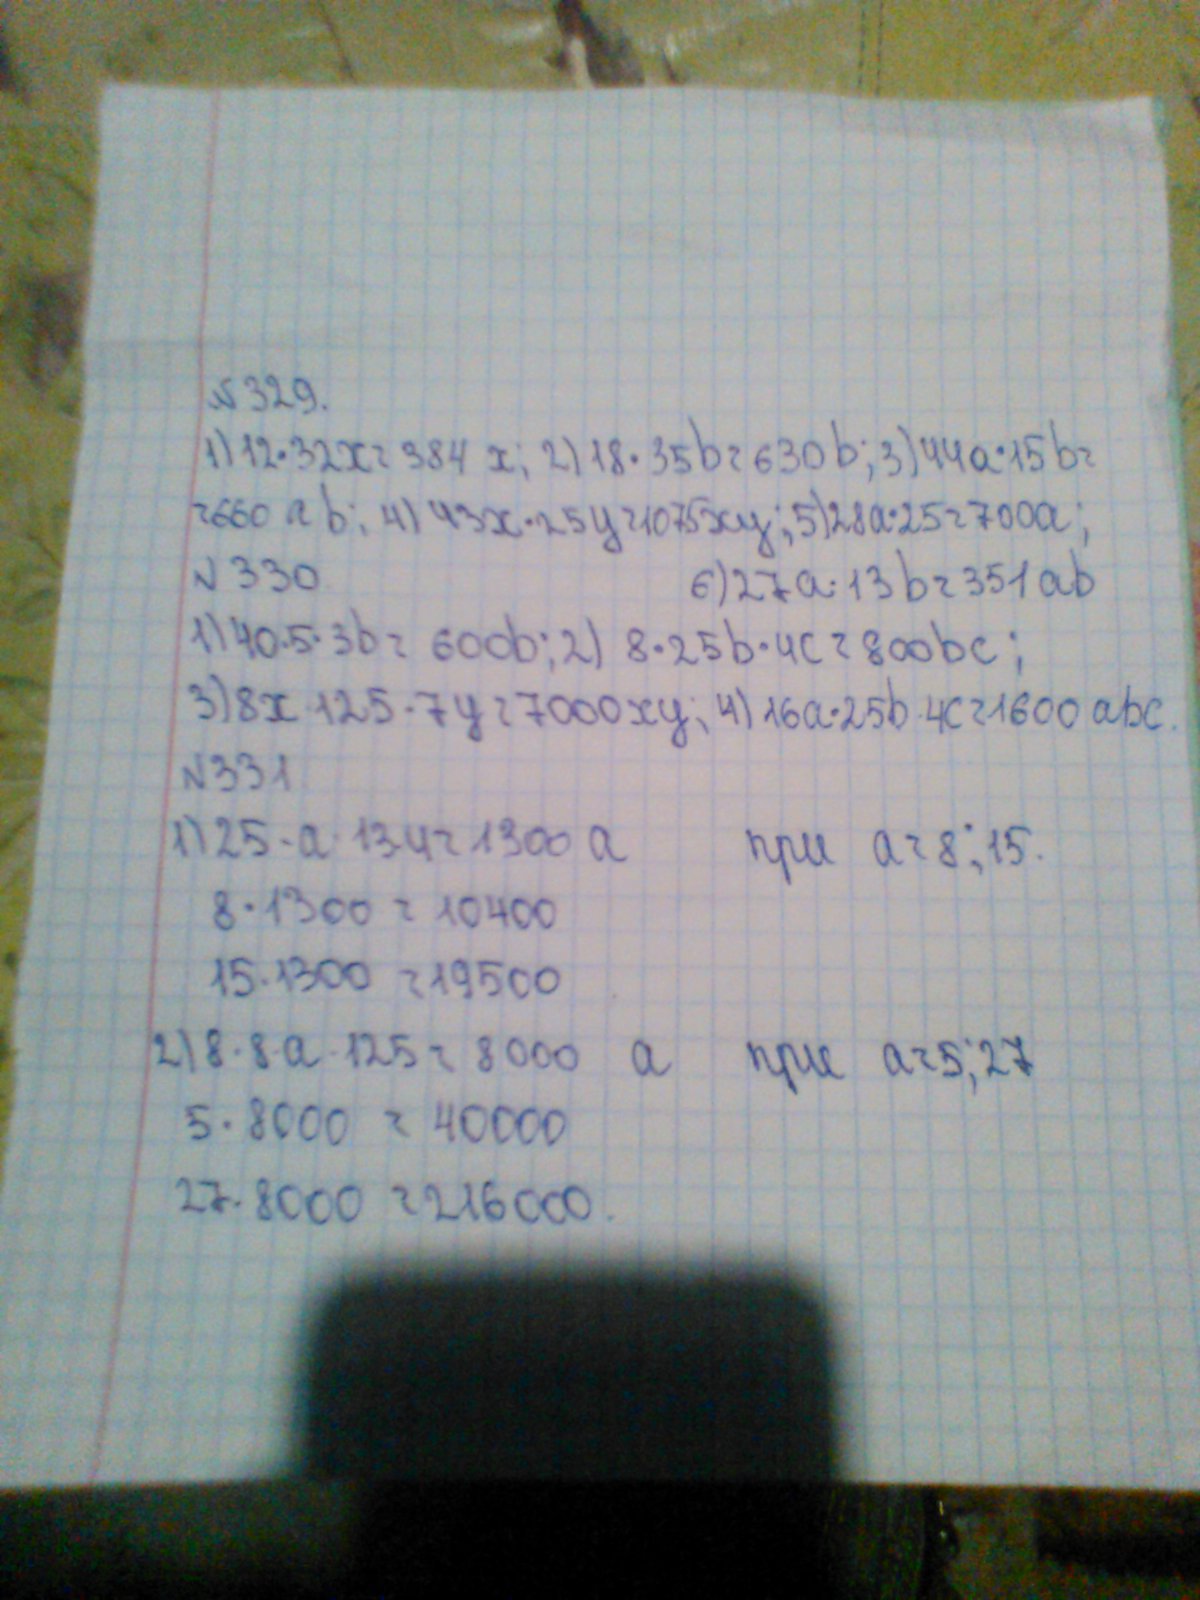 № 329.
1) 12·32x = 384 x; 2) 18·35b = 630b; 3) 44a·15b =
= 660 ab; 4) 43x·25y = 1075xy; 5) 28a·25 = 700a;
№ 330 6) 27a·13b = 351ab
1) 40·5·3b = 600b; 2) 8·25b·4c = 800bc;
3) 8x·125·7y = 7000xy; 4) 16a·25b·4c = 1600 abc.
№ 331
1) 25·a·13·4 = 1300 a при a = 8; 15.
8·1300 = 10400
15·1300 = 19500
2) 8·8·a·125 = 8000 a при a = 5; 27
5·8000 = 40000
27·8000 = 216000.